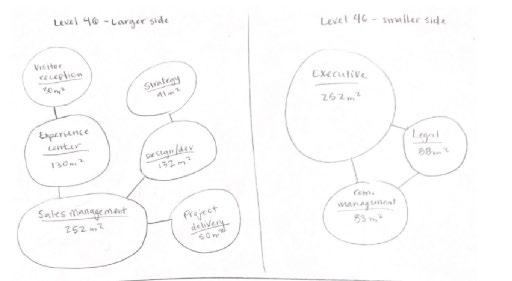 Level 46 - Larger side
Visitor
reception
30m²
Strategy
41m²
Experience
center
130m²
Design/dev
132m²
Sales Management
252m²
Project
delivery
50m²
Level 46 - smaller side
Executive
252m²
Legal
38m²
management